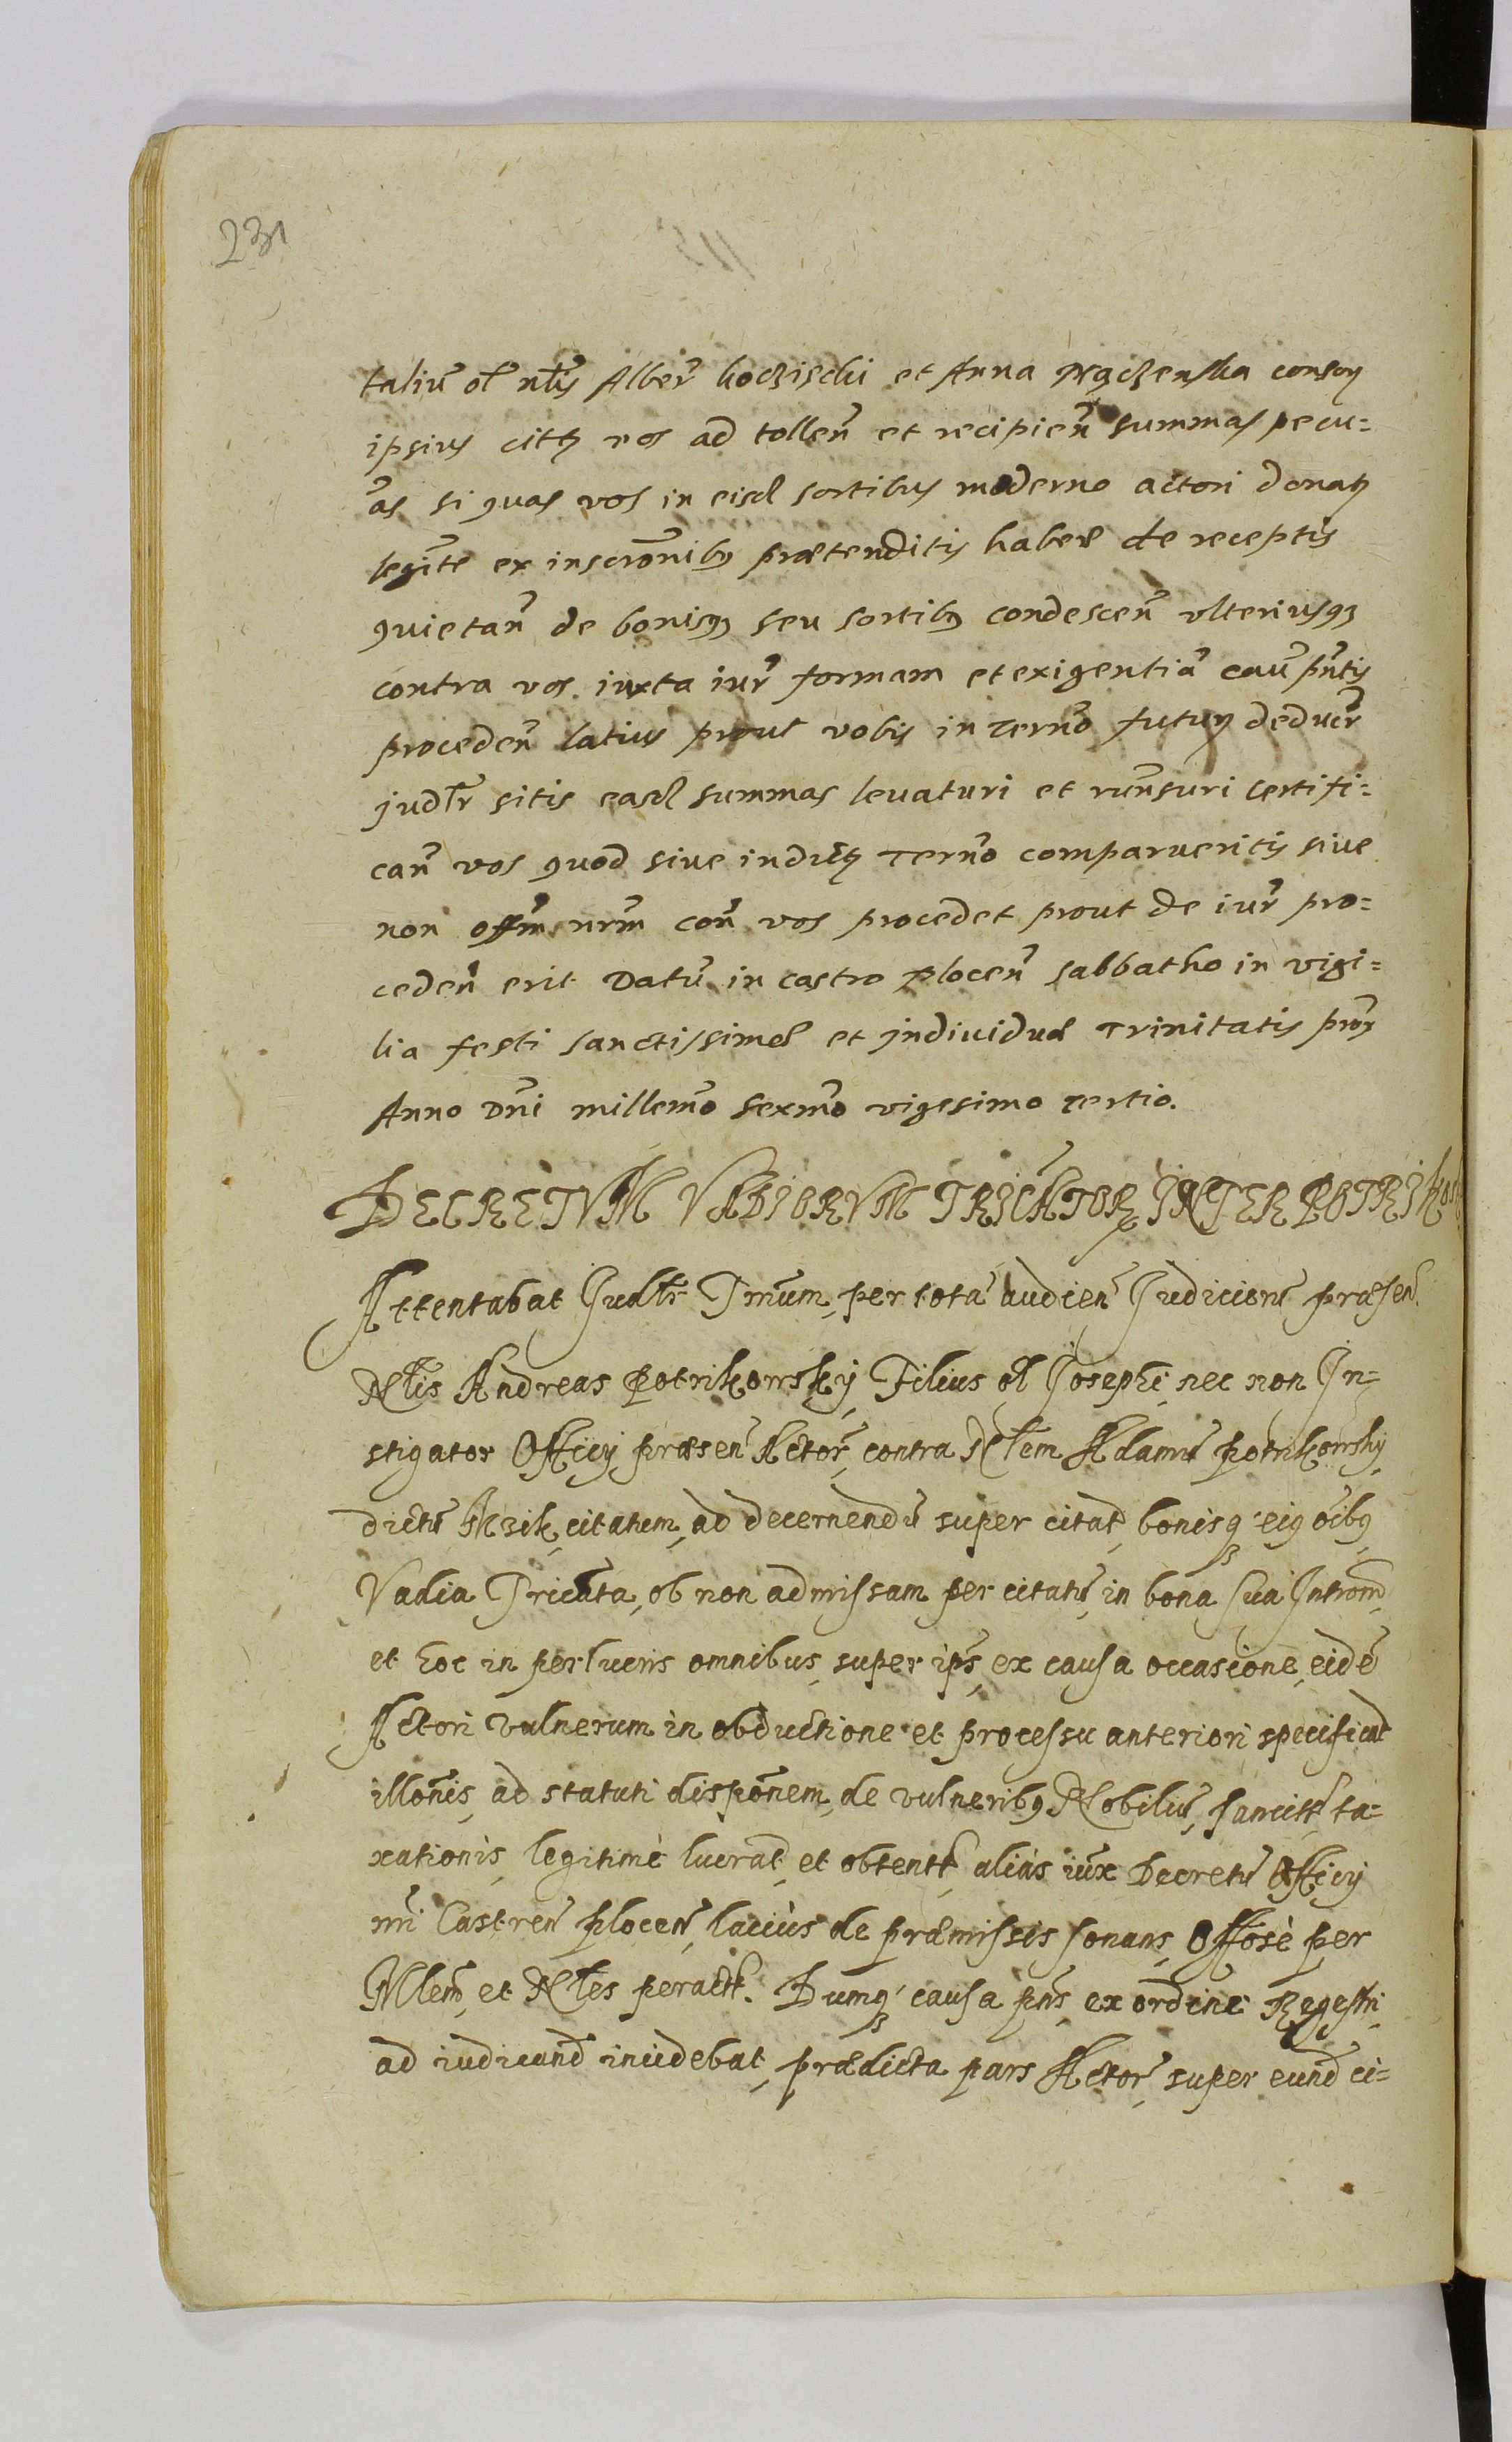 231
taliũ ol nlis Alber̃ kocziscki et Anna consor
ipsius citⱬ vos ad tolleñ et recipieñ summas pecu=
ãs si quas vos in eisd sortibus moderno actori donatⱬ
legitẽ ex inscrõnibꝫ prætenditis haberẽ de receptis
quietañ de bonisqꝫ seu sortibꝫ condesceñ vlteriusqꝫ
contra vos iuxta iur̃ formam et exigentiã cau͂ pñtis
procedeñ latius prout vobis in termõ futurꝫ deducr̃
judlr sitis easd summas leuaturi et certifi=
cañ vos quod siue indictꝫ termõ comparueritis siue
non offm̃ nrm̃ coñ vos procedet prout de iur̃ pro=
cedeñ erit Datũ in castro plocen̄ sabbatho in vigi=
lia festi sanctissimæ et jndividuæ Trinitatis prox
Anno Dñi millemõ sexmõ vigesimo tertio.
DECRETVM VADIORVM INTER POTRIKos
Attentabat Judlr Tmum, per totã audieñ Judiciorũ præsen̄
Nlis Andreas Potrikowskÿ Filius ol Josephi, nec non In=
stigator Officÿ præsen̄ Actor̃, contra Nlem Adamũ potrikowskÿ,
dictũ citatum, ad decernendũ super citat, bonisqꝫ eiꝫ oibꝫ
Vadia ob non admissam per citatũ, in bona sua Introm̃,
et hoc in perlucris omnibus, super ips̃, ex causa occasione, eidẽ
Actori vulnerum in obductione et processu anteriori specificat
illõnis, ad statuti dispõnem, de vulneribꝫ Nobiliũ, sancitt ta=
xationis legitimè lucrat, et obtentt alias iux Decretũ Officÿ
nri Castren̄ plocen̄, lacius de præmissis sonans, Offosè per
Mlem, et Nles peractt. Dumqꝫ causa pns, ex ordine Regestri
ad iudicand incidebat, prædicta pars Actor̃, super eund ci=